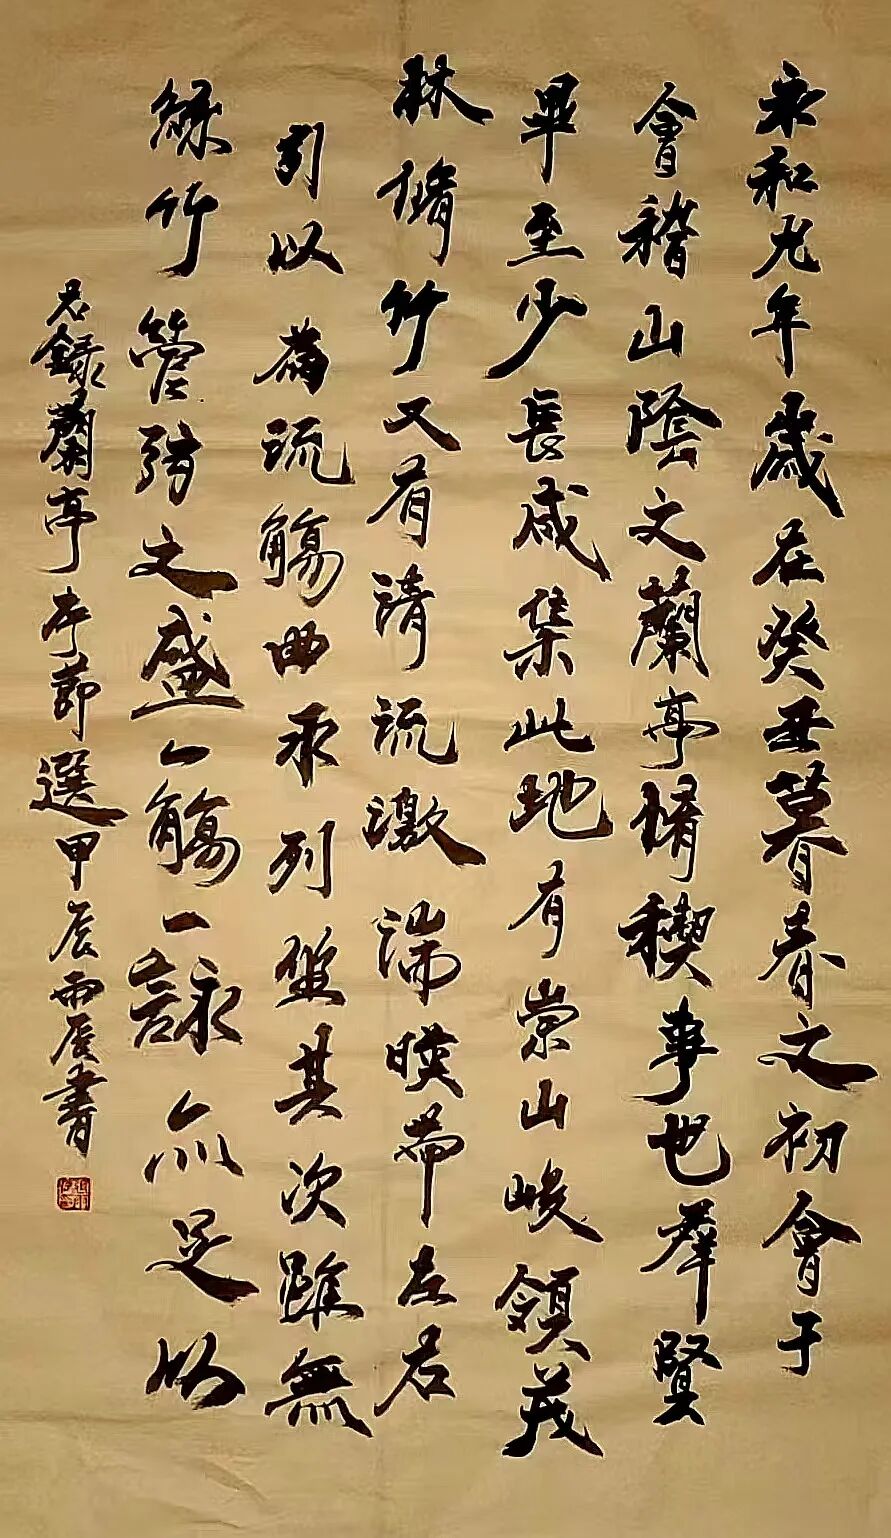 永和九年歲在癸丑暮春之初會于
會稽山陰之蘭亭脩禊事也羣賢
畢至少長咸集此地有崇山峻領茂
林脩竹又有清流激湍暎帶左右
引以為流觴曲水列坐其次雖無
絲竹管弦之盛一觴一詠亦足以
右錄蘭亭序節選甲辰雨辰書